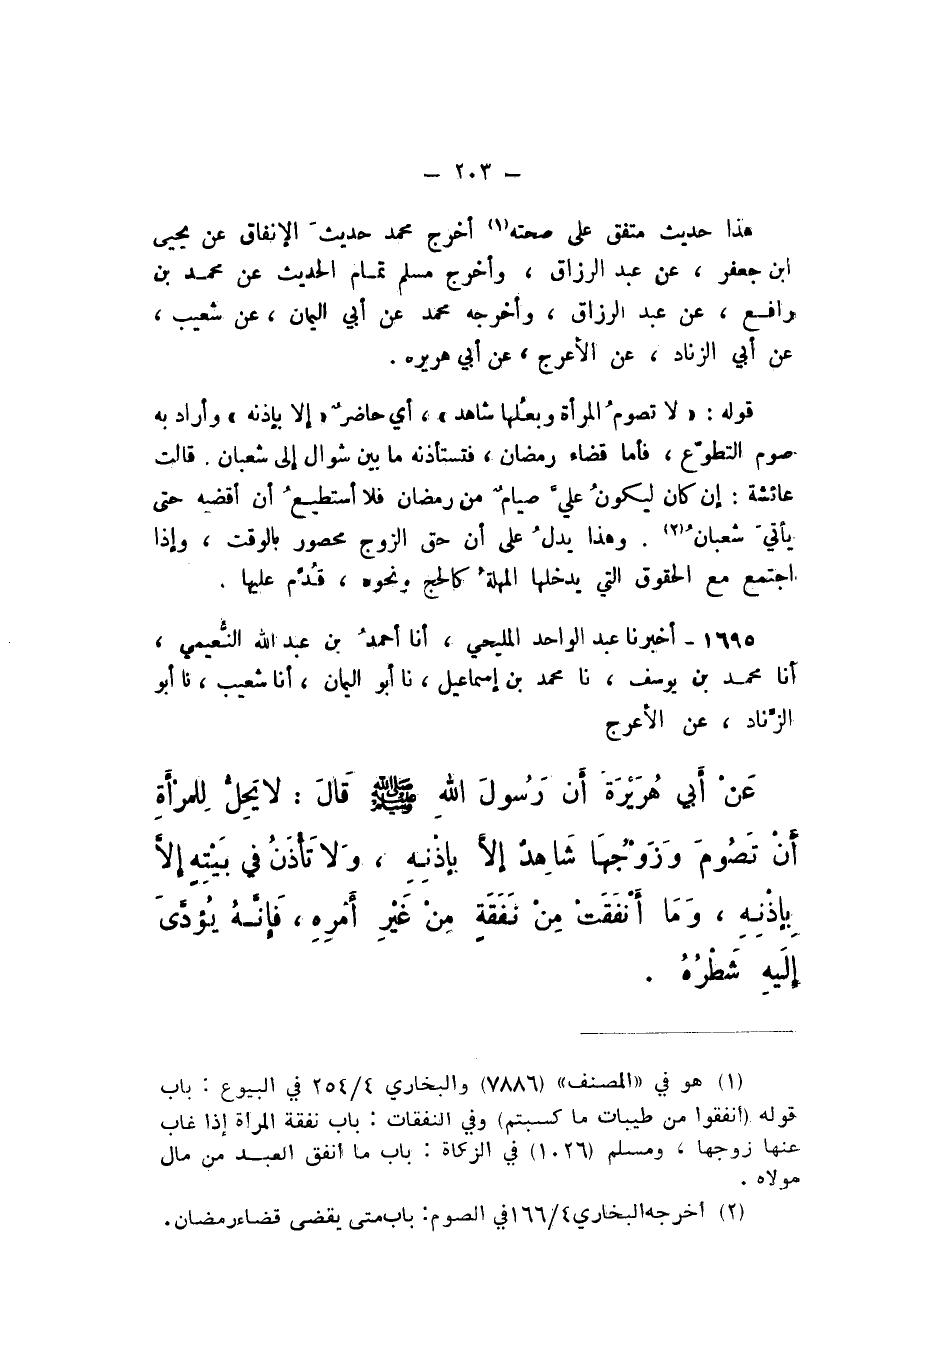 - ٢٠٣ -
هذا حديث متفق على صحته(١) أخرج محمد حديثَ الإنفاق عن يحيى
ابن جعفر ، عن عبد الرزاق ، وأخرج مسلم تمام الحديث عن محمد بن
رافع ، عن عبد الرزاق ، وأخرجه محمد عن أبي اليمان ، عن شعيب ،
عن أبي الزناد ، عن الأعرج ، عن أبي هريره .
قوله : « لا تصومُ المرأة وبعلُها شاهد » ، أي حاضرٌ « إلا بإذنه » وأراد به
صوم التطوّع ، فأما قضاء رمضان ، فتستأذنه ما بين شوال إلى شعبان . قالت
عائشة : إن كان ليكونُ عليَّ صيامٌ من رمضان فلا أستطيعُ أن أقضيه حتى
يأتيَ شعبانُ(٢) . وهذا يدلُ على أن حق الزوج محصور بالوقت ، وإذا
اجتمع مع الحقوق التي يدخلها المهلةُ كالحج ونحوه ، قُدِّم عليها .
١٦٩٥ - أخبرنا عبد الواحد المليحي ، أنا أحمدُ بن عبد الله النُّعيمي ،
أنا محمد بن يوسف ، نا محمد بن إسماعيل ، نا أبو اليمان ، أنا شعيب ، نا أبو
الزّناد ، عن الأعرج
عَنْ أَبي هُرَيْرَةَ أَن رَسُولَ اللهِ ﷺ قَالَ : لا يَحِلُّ لِلمرْأَةِ
أَنْ تَصُومَ وَزَوْجُهَا شَاهِدٌ إلاَّ بإذْنِهِ ، وَلا تَأْذَنُ في بَيْتِهِ إلاَّ
بِإذْنِهِ ، وَمَا أَنْفَقَتْ مِنْ نَفَقَةٍ مِنْ غَيْرِ أَمْرِهِ ، فَإنَّهُ يُؤدَّى
إلَيهِ شَطْرُهُ .
(١) هو في «المصنف» (٧٨٨٦) والبخاري ٢٥٤/٤ في البيوع : باب
قوله (أنفقوا من طيبات ما كسبتم) وفي النفقات : باب نفقة المرأة إذا غاب
عنها زوجها ، ومسلم (١٠٢٦) في الزكاة : باب ما أنفق العبد من مال
مولاه .
(٢) أخرجه البخاري ١٦٦/٤ في الصوم: باب متى يقضى قضاء رمضان .